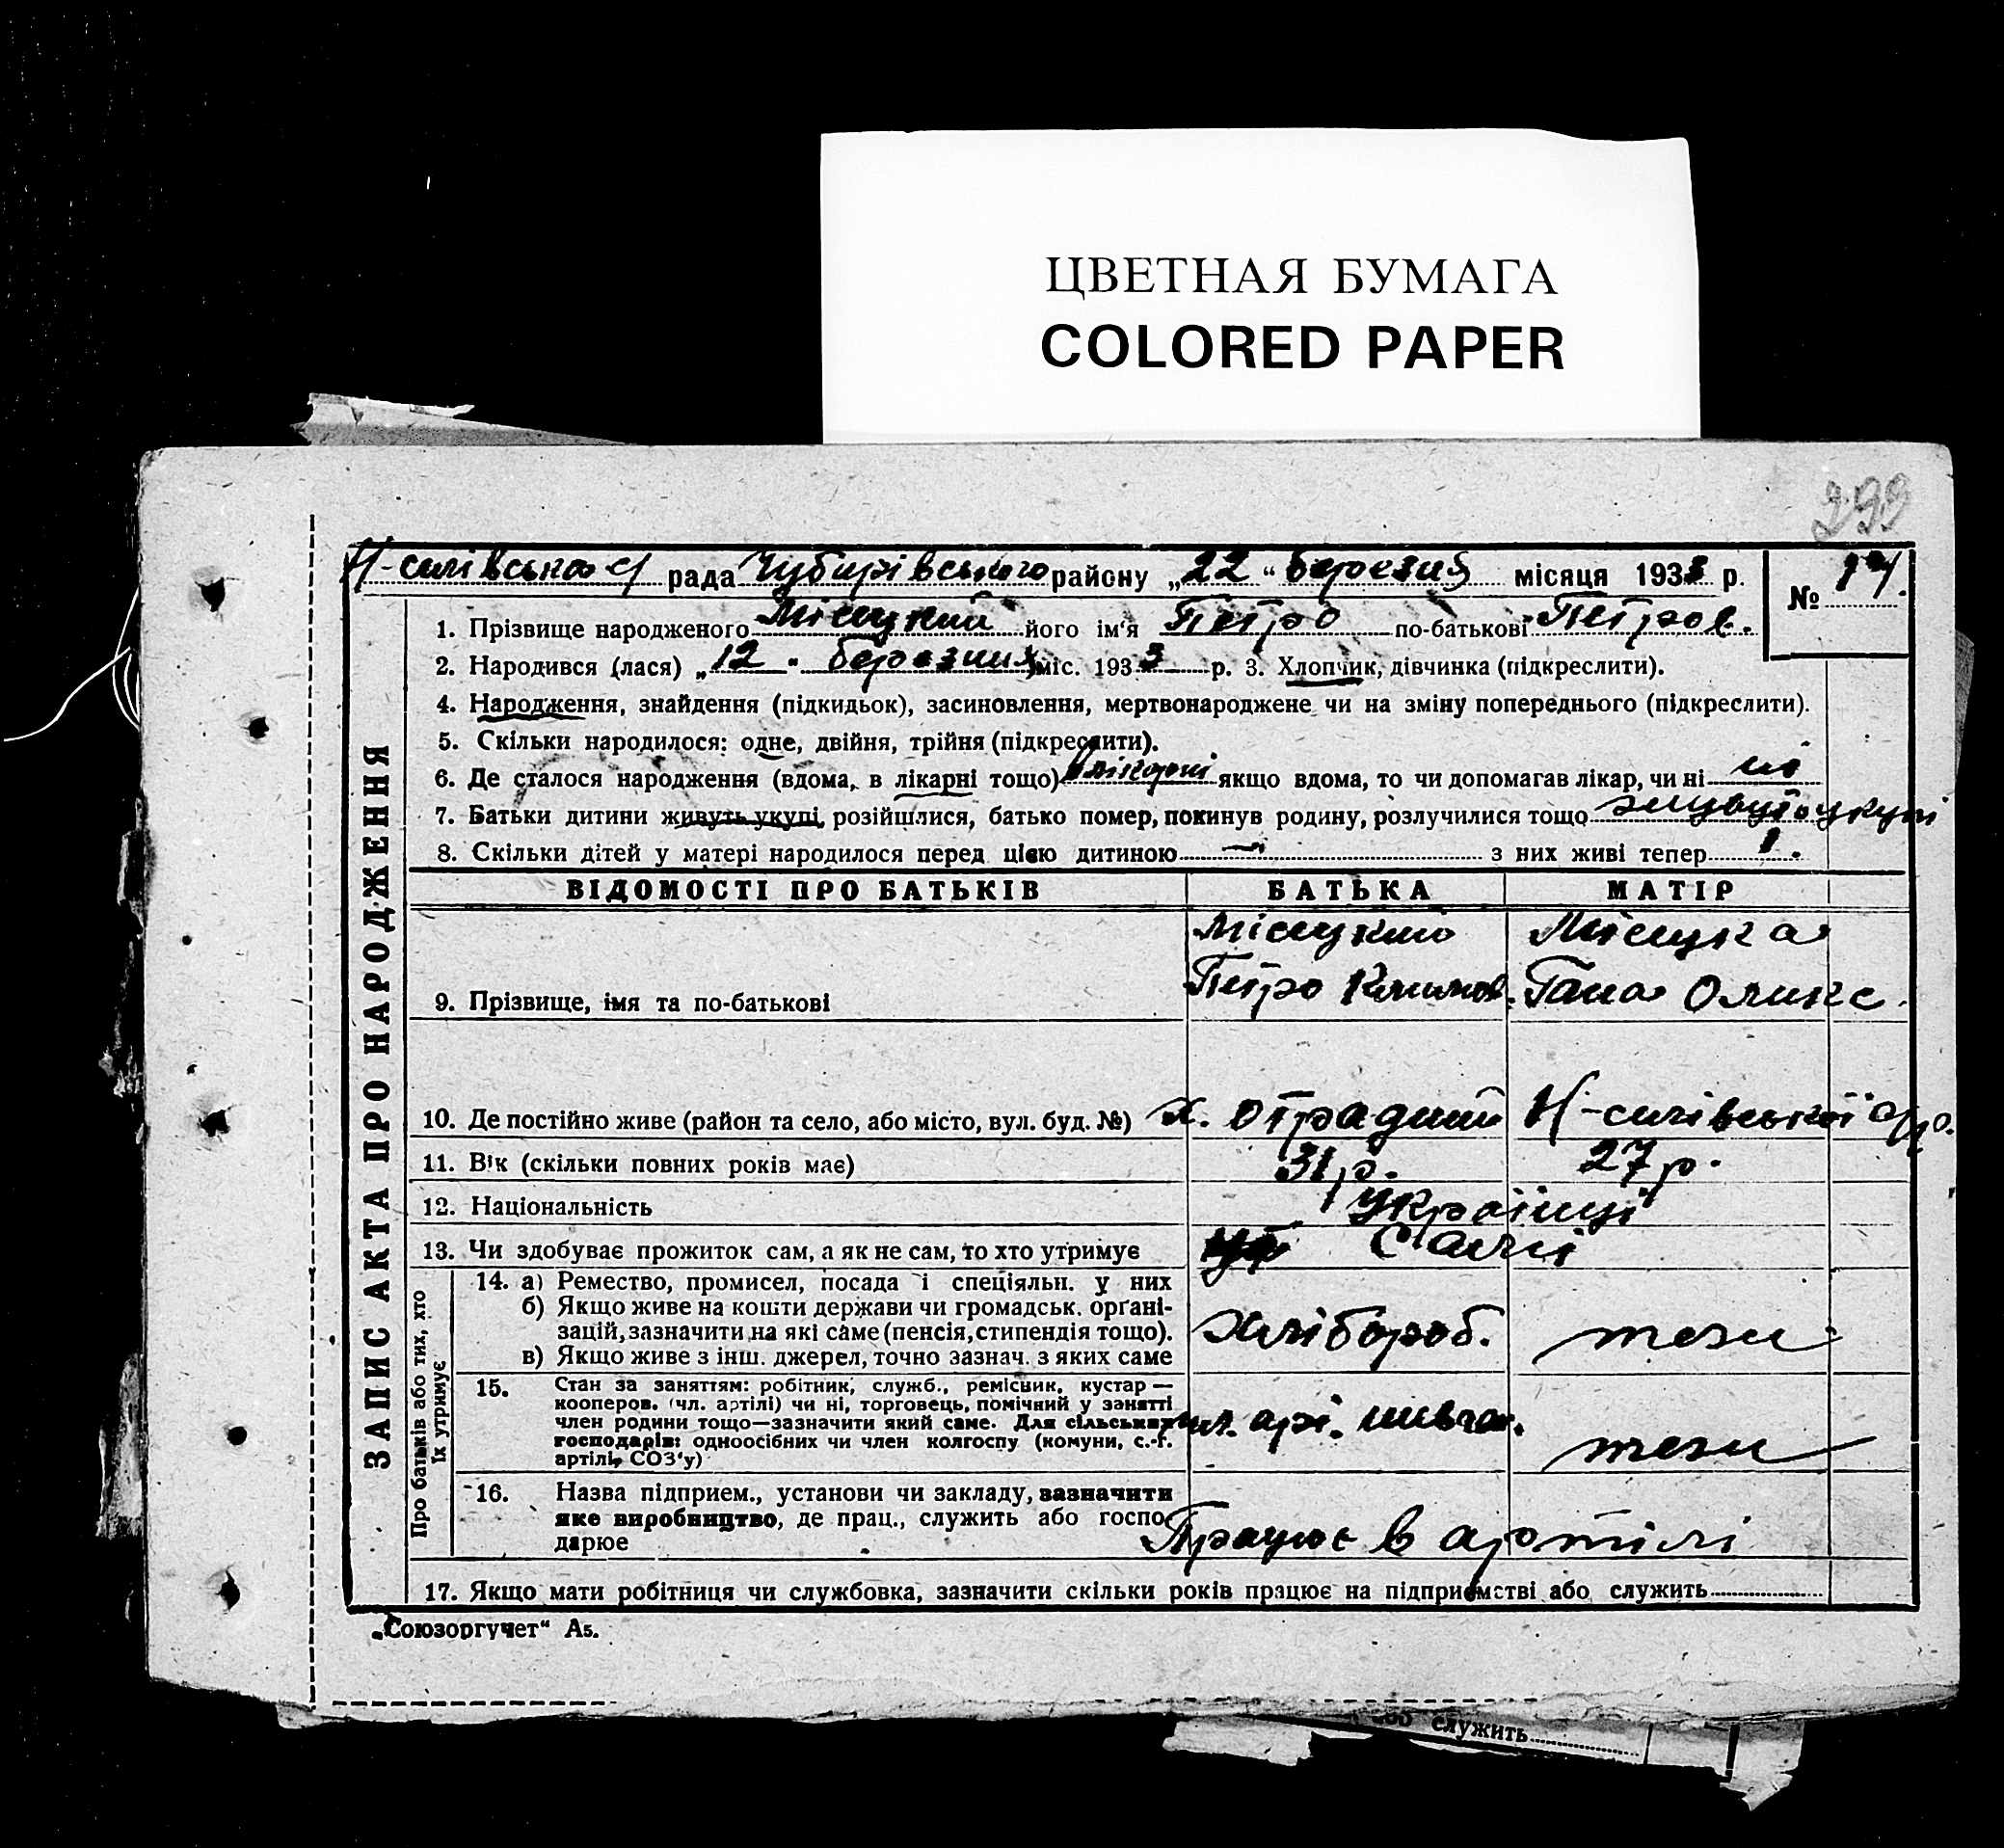 ЦВЕТНАЯ БУМАГА
COLORED PAPER
299
рада Чубарівського району „22“ березня місяця 1933 р.
№ 14.
1. Прізвище народженого його ім'я Петро по-батькові Петров.
2. Народився (лася) „12“ березня міс. 1933 р. 3. Хлопчик, дівчинка (підкреслити).
4. Народження, знайдення (підкидьок), засиновлення, мертвонароджене чи на зміну попереднього (підкреслити).
5. Скільки народилося: одне, двійня, трійня (підкреслити).
6. Де сталося народження (вдома, в лікарні тощо) в лікарні якщо вдома, то чи допомагав лікар, чи ні
7. Батьки дитини живуть укупі, розійшлися, батько помер, покинув родину, розлучилися тощо живуть укупі
8. Скільки дітей у матері народилося перед цією дитиною — з них живі тепер 1.
ЗАПИС АКТА ПРО НАРОДЖЕННЯ
ВІДОМОСТІ ПРО БАТЬКІВ БАТЬКА МАТІР
9. Прізвище, імя та по-батькові Петро Климов. Гана Олекс.
10. Де постійно живе (район та село, або місто, вул. буд. №) х. Отрадний
11. Вік (скільки повних років має) 31 р. 27 р.
12. Національність українці
13. Чи здобуває прожиток сам, а як не сам, то хто утримує сами
Про батьків або тих, хто їх утримує
14. а) Ремество, промисел, посада і спеціяльн. у них
б) Якщо живе на кошти держави чи громадськ. орґані-
зацій, зазначити на які саме (пенсія, стипендія тощо).
в) Якщо живе з інш. джерел, точно зазнач. з яких саме
Хлібороб. теж
15. Стан за заняттям: робітник, служб., ремісник, кустар —
кооперов. (чл. артілі) чи ні, торговець, помічний у занятті
член родини тощо—зазначити який саме. Для сільських
господарів: одноосібних чи член колгоспу (комуни, с.-г.
артілі, СОЗ'у)
чл. арт. теж
16. Назва підприєм., установи чи закладу, зазначити
яке виробництво, де прац., служить або госпо-
дарює
Працює в артілі
17. Якщо мати робітниця чи службовка, зазначити скільки років працює на підприємстві або служить
„Союзоргучет“ А5.
служить